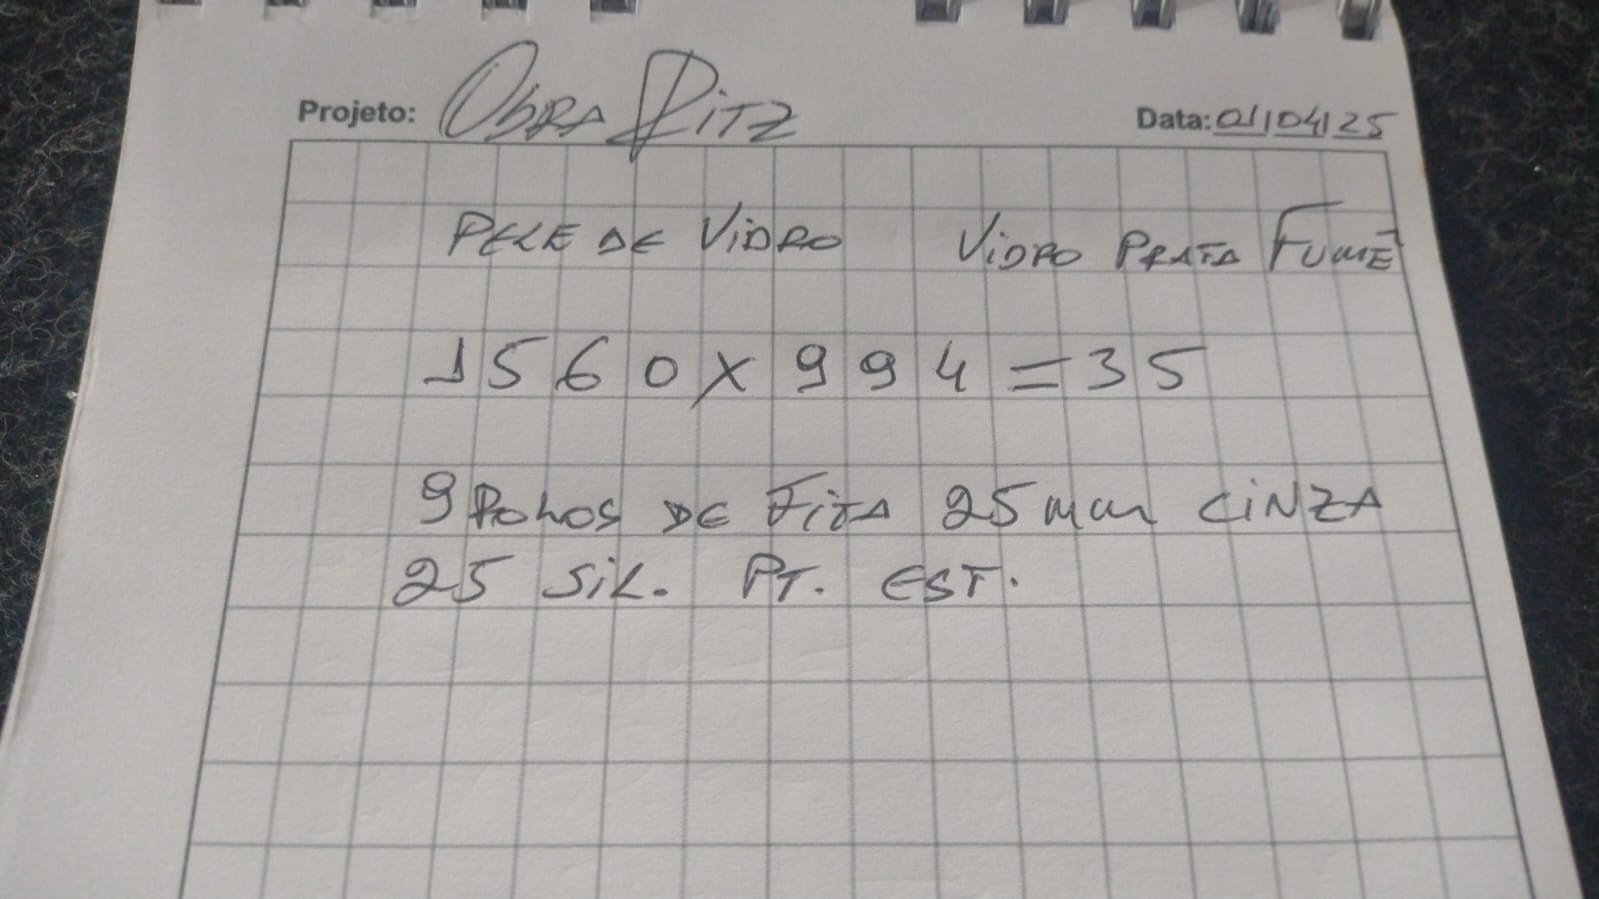 Projeto: Obra Ritz Data: 01/04/25
PELE DE VIDRO VIDRO PRATA FUMÊ
1560 X 994 = 35
9 Rolos DE FITA 25mm CINZA
25 SIL. PT. EST.